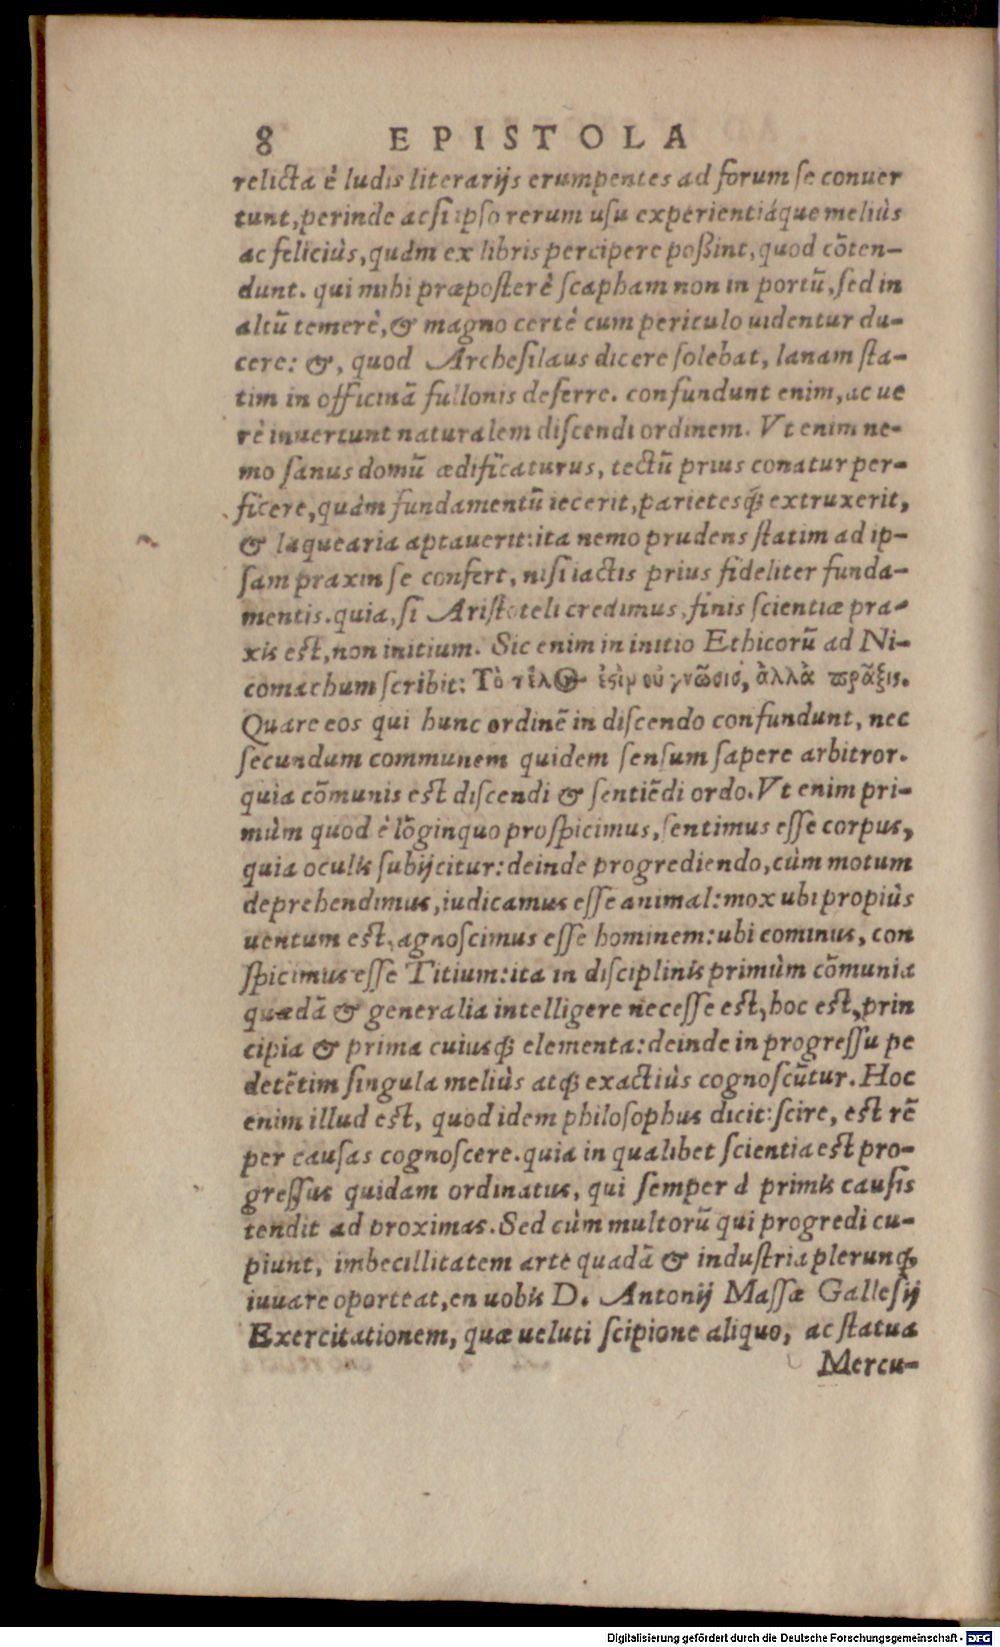 8 EPISTOLA
relicta è ludis literarijs erumpentes ad forum se conuer
tunt, perinde ac si ipso rerum usu experientiáque meliùs
ac feliciùs, quàm ex libris percipere poßint, quod cōten-
dunt. qui mihi præposterè scapham non in portū, sed in
altū temerè, & magno certè cum periculo uidentur du-
cere: &, quod Archesilaus dicere solebat, lanam sta-
tim in officinā fullonis deferre. confundunt enim, ac ue
rè inuertunt naturalem discendi ordinem. Vt enim ne-
mo sanus domū ædificaturus, tectū prius conatur per-
ficere, quàm fundamentū iecerit, parietesq́; extruxerit,
& laquearia aptauerit: ita nemo prudens statim ad ip-
sam praxin se confert, nisi iactis prius fideliter funda-
mentis. quia, si Aristoteli credimus, finis scientiæ pra-
xis est, non initium. Sic enim in initio Ethicorū ad Ni-
comachum scribit: Τὸ τέλος ἐςὶν οὐ γνῶσις, ἀλλὰ πρᾶξις.
Quare eos qui hunc ordinē in discendo confundunt, nec
secundum communem quidem sensum sapere arbitror.
quia cōmunis est discendi & sentiēdi ordo. Vt enim pri-
mùm quod è lōginquo prospicimus, sentimus esse corpus,
quia oculis subijcitur: deinde progrediendo, cùm motum
deprehendimus, iudicamus esse animal: mox ubi propiùs
uentum est, agnoscimus esse hominem: ubi cominus, con
spicimus esse Titium: ita in disciplinis primùm cōmunia
quædā & generalia intelligere necesse est, hoc est, prin
cipia & prima cuiusq́; elementa: deinde in progressu pe
detētim singula meliùs atq́; exactiùs cognoscūtur. Hoc
enim illud est, quod idem philosophus dicit: scire, est rē
per causas cognoscere. quia in qualibet scientia est pro-
gressus quidam ordinatus, qui semper à primis causis
tendit ad proximas. Sed cùm multorū qui progredi cu-
piunt, imbecillitatem arte quadā & industria plerunq́;
iuuare oporteat, en uobis D. Antonij Massæ Gallesij
Exercitationem, quæ ueluti scipione aliquo, ac statua
Mercu-
Digitalisierung gefördert durch die Deutsche Forschungsgemeinschaft - DFG